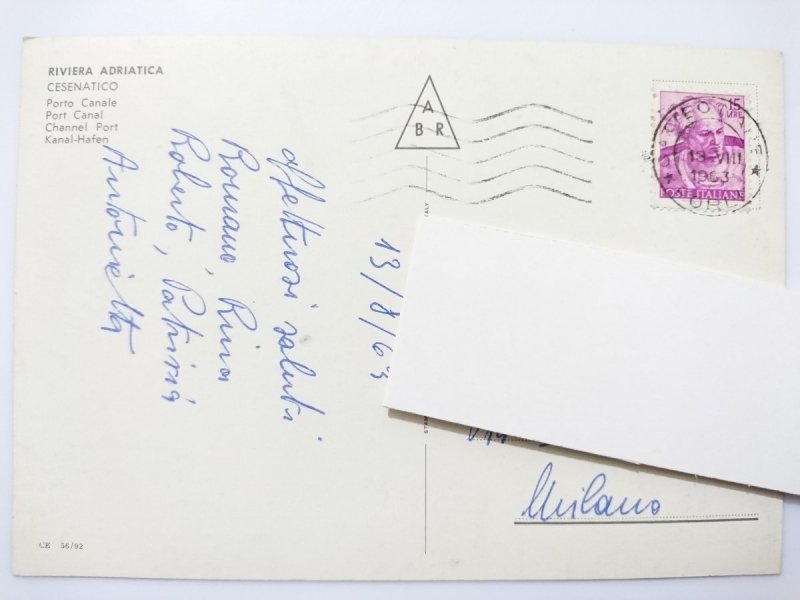 RIVIERA ADRIATICA
CESENATICO
Porto Canale
Port Canal
Channel Port
Kanal-Hafen
A
B R
15
LIRE
13-VIII
1963
POSTE ITALIANE
13/8/63
affettuosi saluti
Romano, Rina
Roberto, Patrizia
Antonietta
Milano
CE 56/92